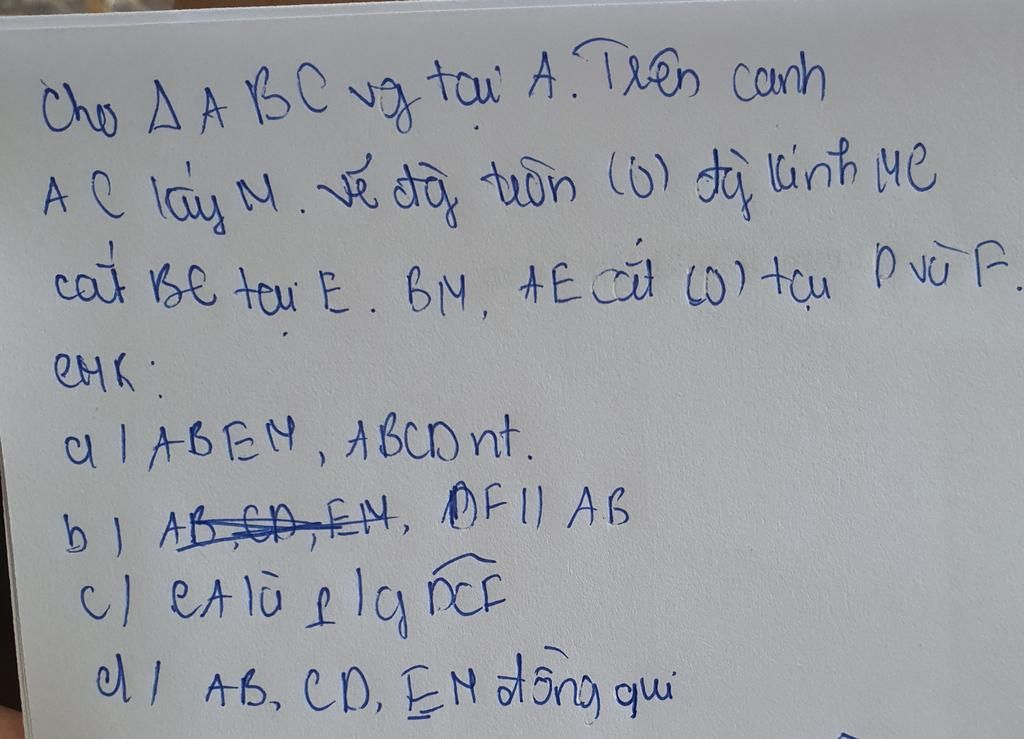 Cho Δ ABC vg tại A. Trên canh
AC lấy M. Vẽ đg tròn (O) đg kính MC
cắt BC tại E. BM, AE cắt (O) tại D và F.
CMR:
a/ ABEM, ABCD nt.
b/ AB, CD, EM, DF // AB
c/ CA là p/g DCF
d/ AB, CD, EM đồng qui